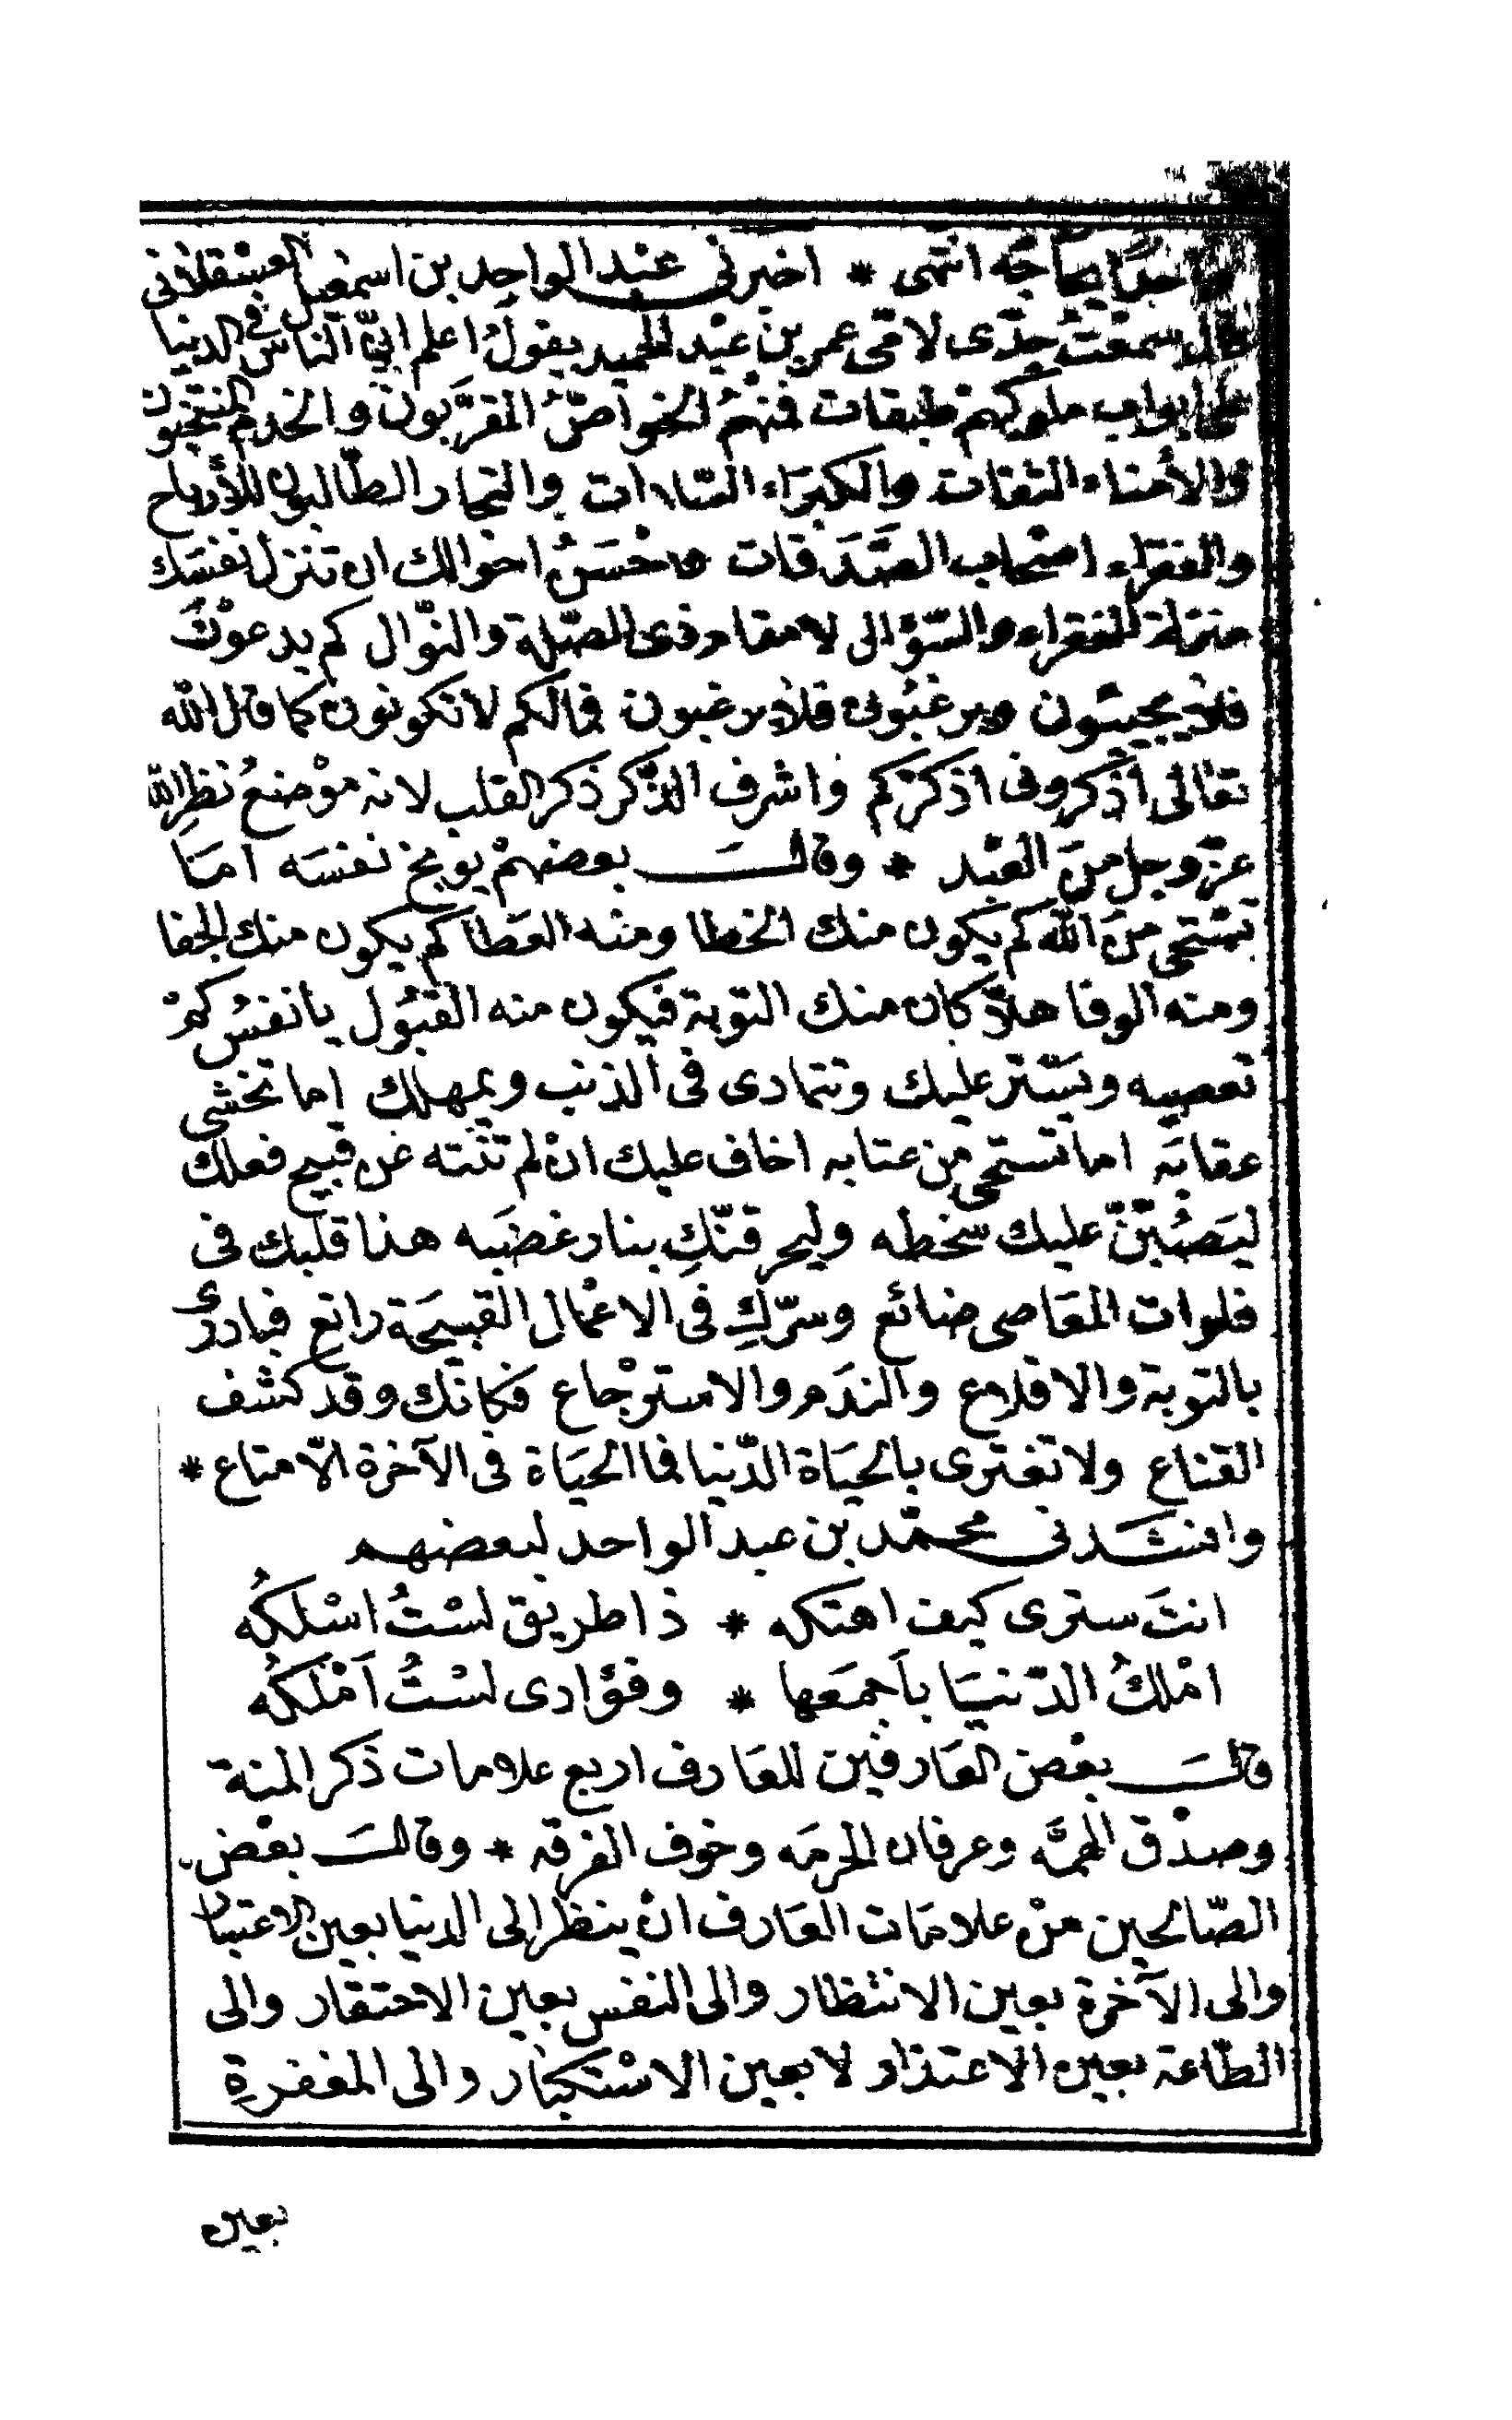 انتهى * اخبرنى عبد الواحد بن اسمعيل العسقلانى
قال سمعت جدّى لامّى عمر بن عبد الحميد يقول اعلم انّ الناس فى الدنيا
على ابواب ملوكهم طبقات فمنهُم الخواصّ المقرَّبون والخدم المنتخبون
والأمناء الثقات والكبرَاء السّادات والتجار الطّالبون للأرباح
والفقراء اصحاب الصَّدَقات واحْسَنُ احوالك ان تنزل نفسَك
منزلة الفقراء والسّؤال لا مقام ذى الصّلة والنّوال كم يدعوْنَ
فلا يجيبون ويرغبُون فلا يرغبون فمالكم لا تكونون كما قال الله
تعالى اذكرونى اذكرْكم واشرف الذّكر ذكر القلب لانه موْضعُ نظرِ الله
عزّ وجل منَ العبْد * وقالَ بعضهمْ يوبخ نفسَه امَا
تستحى منَ الله كم يكون منك الخطا ومنه العَطا كم يكون منك الجفا
ومنه الوفا هلّا كان منك التوبة فيكون منه القبُول يا نفسُ كمْ
تعصيه ويَسْتر عليك وتتمادى فى الذنب ويمهلك اما تخشى
عقابَه اما تستحى من عتابه اخاف عليك انْ لم تنْته عَن قبيح فعلك
ليَصُبّنّ عليك سخطه وليحرقنّكِ بنار غضَبه هذا قلبك فى
فلوات المعَاصى ضائع وسرّكِ فى الاعْمال القبيحَة راتع فبادرى
بالتوبة والاقلاع والندَم والاسترْجاع فكانك وقد كشف
القناع ولا تغترى بالحيَاة الدّنيا فما الحيَاة فى الآخرة الّا متاع *
وانشدنى محمّد بن عبد الواحد لبعضهم
انتَ سترى كيف اهتكه * ذا طريق لسْتُ اسْلكُه
امْلكُ الدّنيَا بأجمعَها * وفؤادى لسْتُ اَمْلكُه
قالَ بعْض العَارفين للعَارف اربع علامات ذكر المنة
وصدْق الهمَّه وعرفان الحرمَه وخوف الفرقه * وقالَ بعْض
الصّالحين منْ علامَات العَارف انْ ينظر الى الدنيا بعين الاعتبار
والى الآخرة بعين الانتظار والى النفس بعين الاحتقار والى
الطّاعة بعين الاعتذار لا بعين الاسْتكبار والى المغفرةِ
بعين